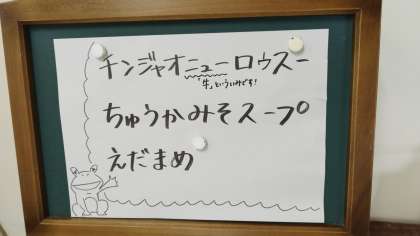 チンジャオニューロウスー
「牛」といういみです!
ちゅうかみそスープ
えだまめ